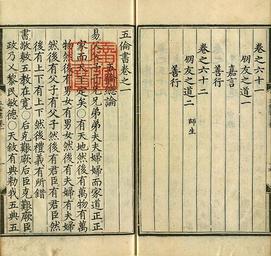 卷之六十一
朋友之道一
嘉言
善行
卷之六十二
朋友之道二 師生
善行
五倫書卷之一
五倫總論
易父父子子兄兄弟弟夫夫婦婦而家道正正
家而天下定矣○有天地然後有萬物有萬
物然後有男女有男女然後有夫婦有夫婦
然後有父子有父子然後有君臣有君臣然
後有上下有上下然後禮義有所錯
書敬敷五教在寬○后克艱厥后臣克艱厥臣
政乃乂黎民敏德○天敘有典勑我五典五